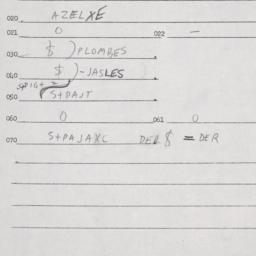 020 AZELXE
021 0 022 —
030 $ ) PLOMBES
040 $ ) -JASLES
050 S+PAJT
060 0 061 0
070 S+PAJAXC DER $ = DER